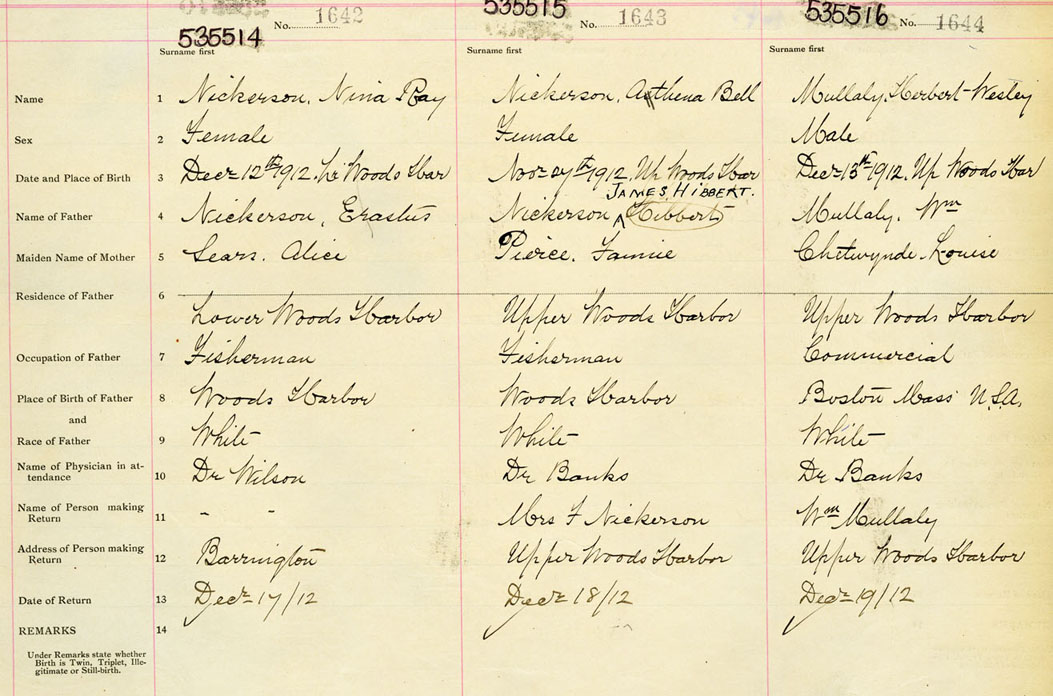 No. 1642 535515 No. 1643 535516 No. 1644
535514
Surname first Surname first Surname first
Name 1 Nickerson, Nina Ray Nickerson, Asthena Bell Mullaly, Herbert-Wesley
Sex 2 Female Female Male
Date and Place of Birth 3 Decr 12th 1912. Woods Har Novr 1912, Up Woods Har Decr 13th 1912. Up Woods Har
JAMES HIBBERT.
Name of Father 4 Nickerson, Erastus Nickerson, Hibbert Mullaly, Wm
Maiden Name of Mother 5 Sears. Alice Pierce. Fannie Chetwynde. Louise
Residence of Father 6
Lower Woods Harbor Upper Woods Harbor Upper Woods Harbor
Occupation of Father 7 Fisherman Fisherman Commercial
Place of Birth of Father 8 Woods Harbor Woods Harbor Boston Mass U.S.A.
and
Race of Father 9 White White White
Name of Physician in at-
tendance 10 Dr Wilson Dr Banks Dr Banks
Name of Person making
Return 11 " " Mrs F Nickerson Wm Mullaly
Address of Person making
Return 12 Barrington Upper Woods Harbor Upper Woods Harbor
Date of Return 13 Decr 17/12 Decr 18/12 Decr 19/12
REMARKS 14
Under Remarks state whether
Birth is Twin, Triplet, Ille-
gitimate or Still-birth.